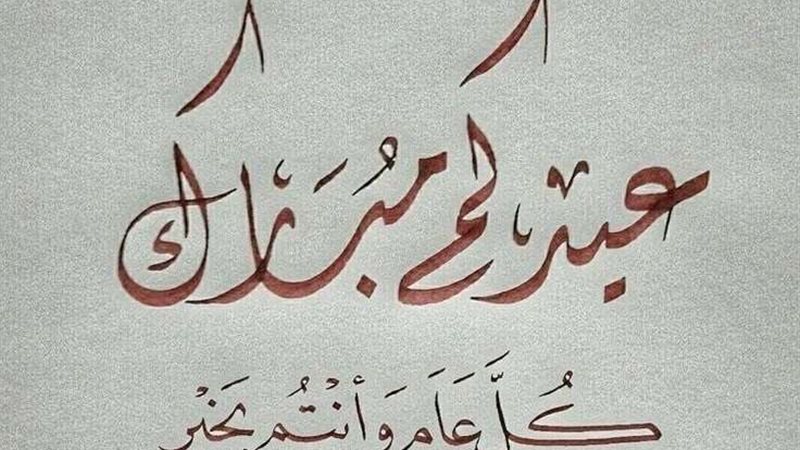 عيدكم مُبَارك
كُلَّ عَامَ وَأنْتُم بَخَيْر